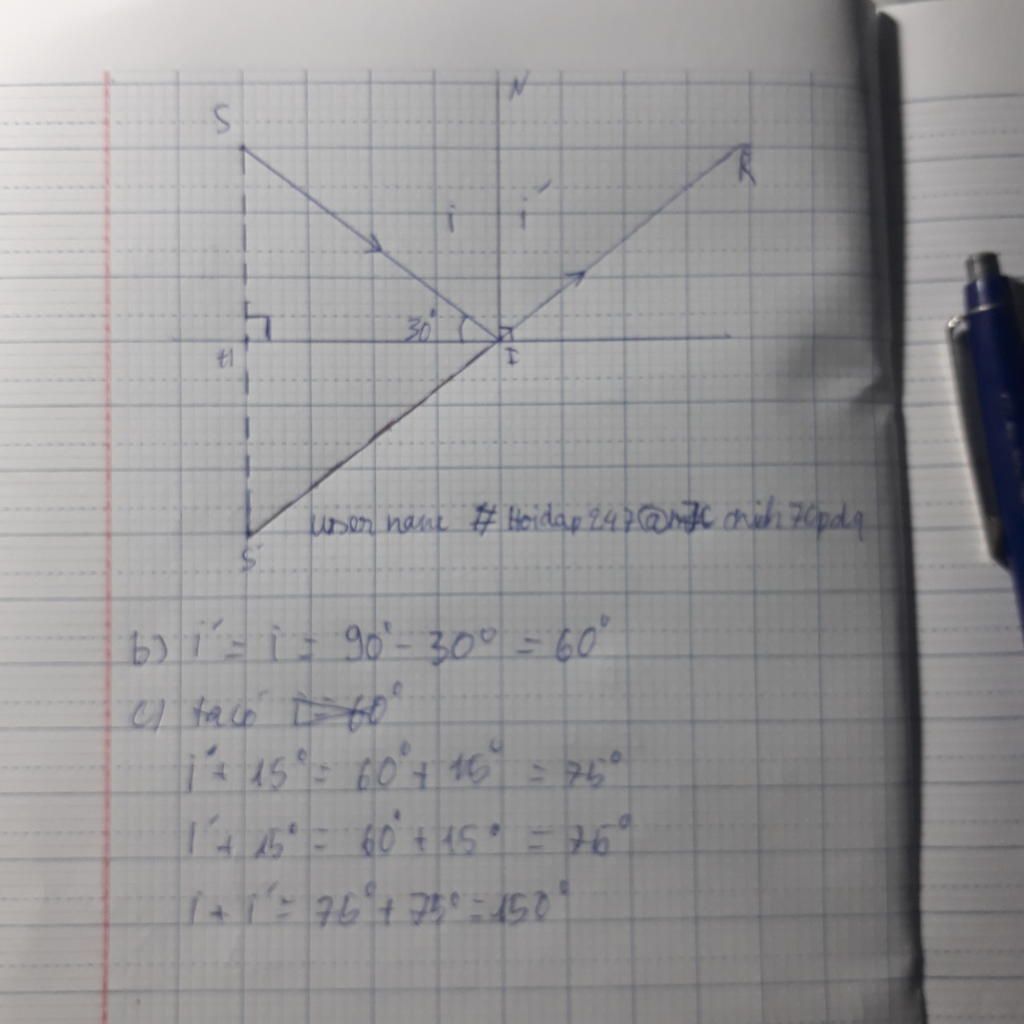 S
N
R
i i'
30°
H
I
S'
user name # Hoidap247@
b) i' = i = 90° - 30° = 60°
c) ta có
i + 15° = 60° + 15° = 75°
i' + 15° = 60° + 15° = 75°
i + i' = 75° + 75° = 150°